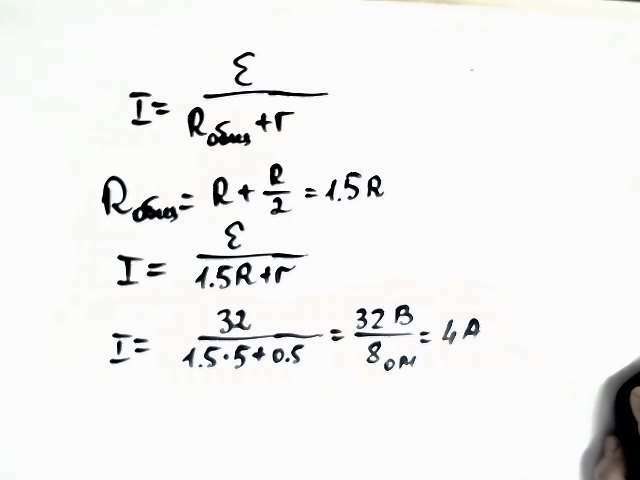 I = ε / (Rобщ + r)
Rобщ = R + R/2 = 1.5R
I = ε / (1.5R + r)
I = 32 / (1.5·5+0.5) = 32 В / 8 ом = 4 А